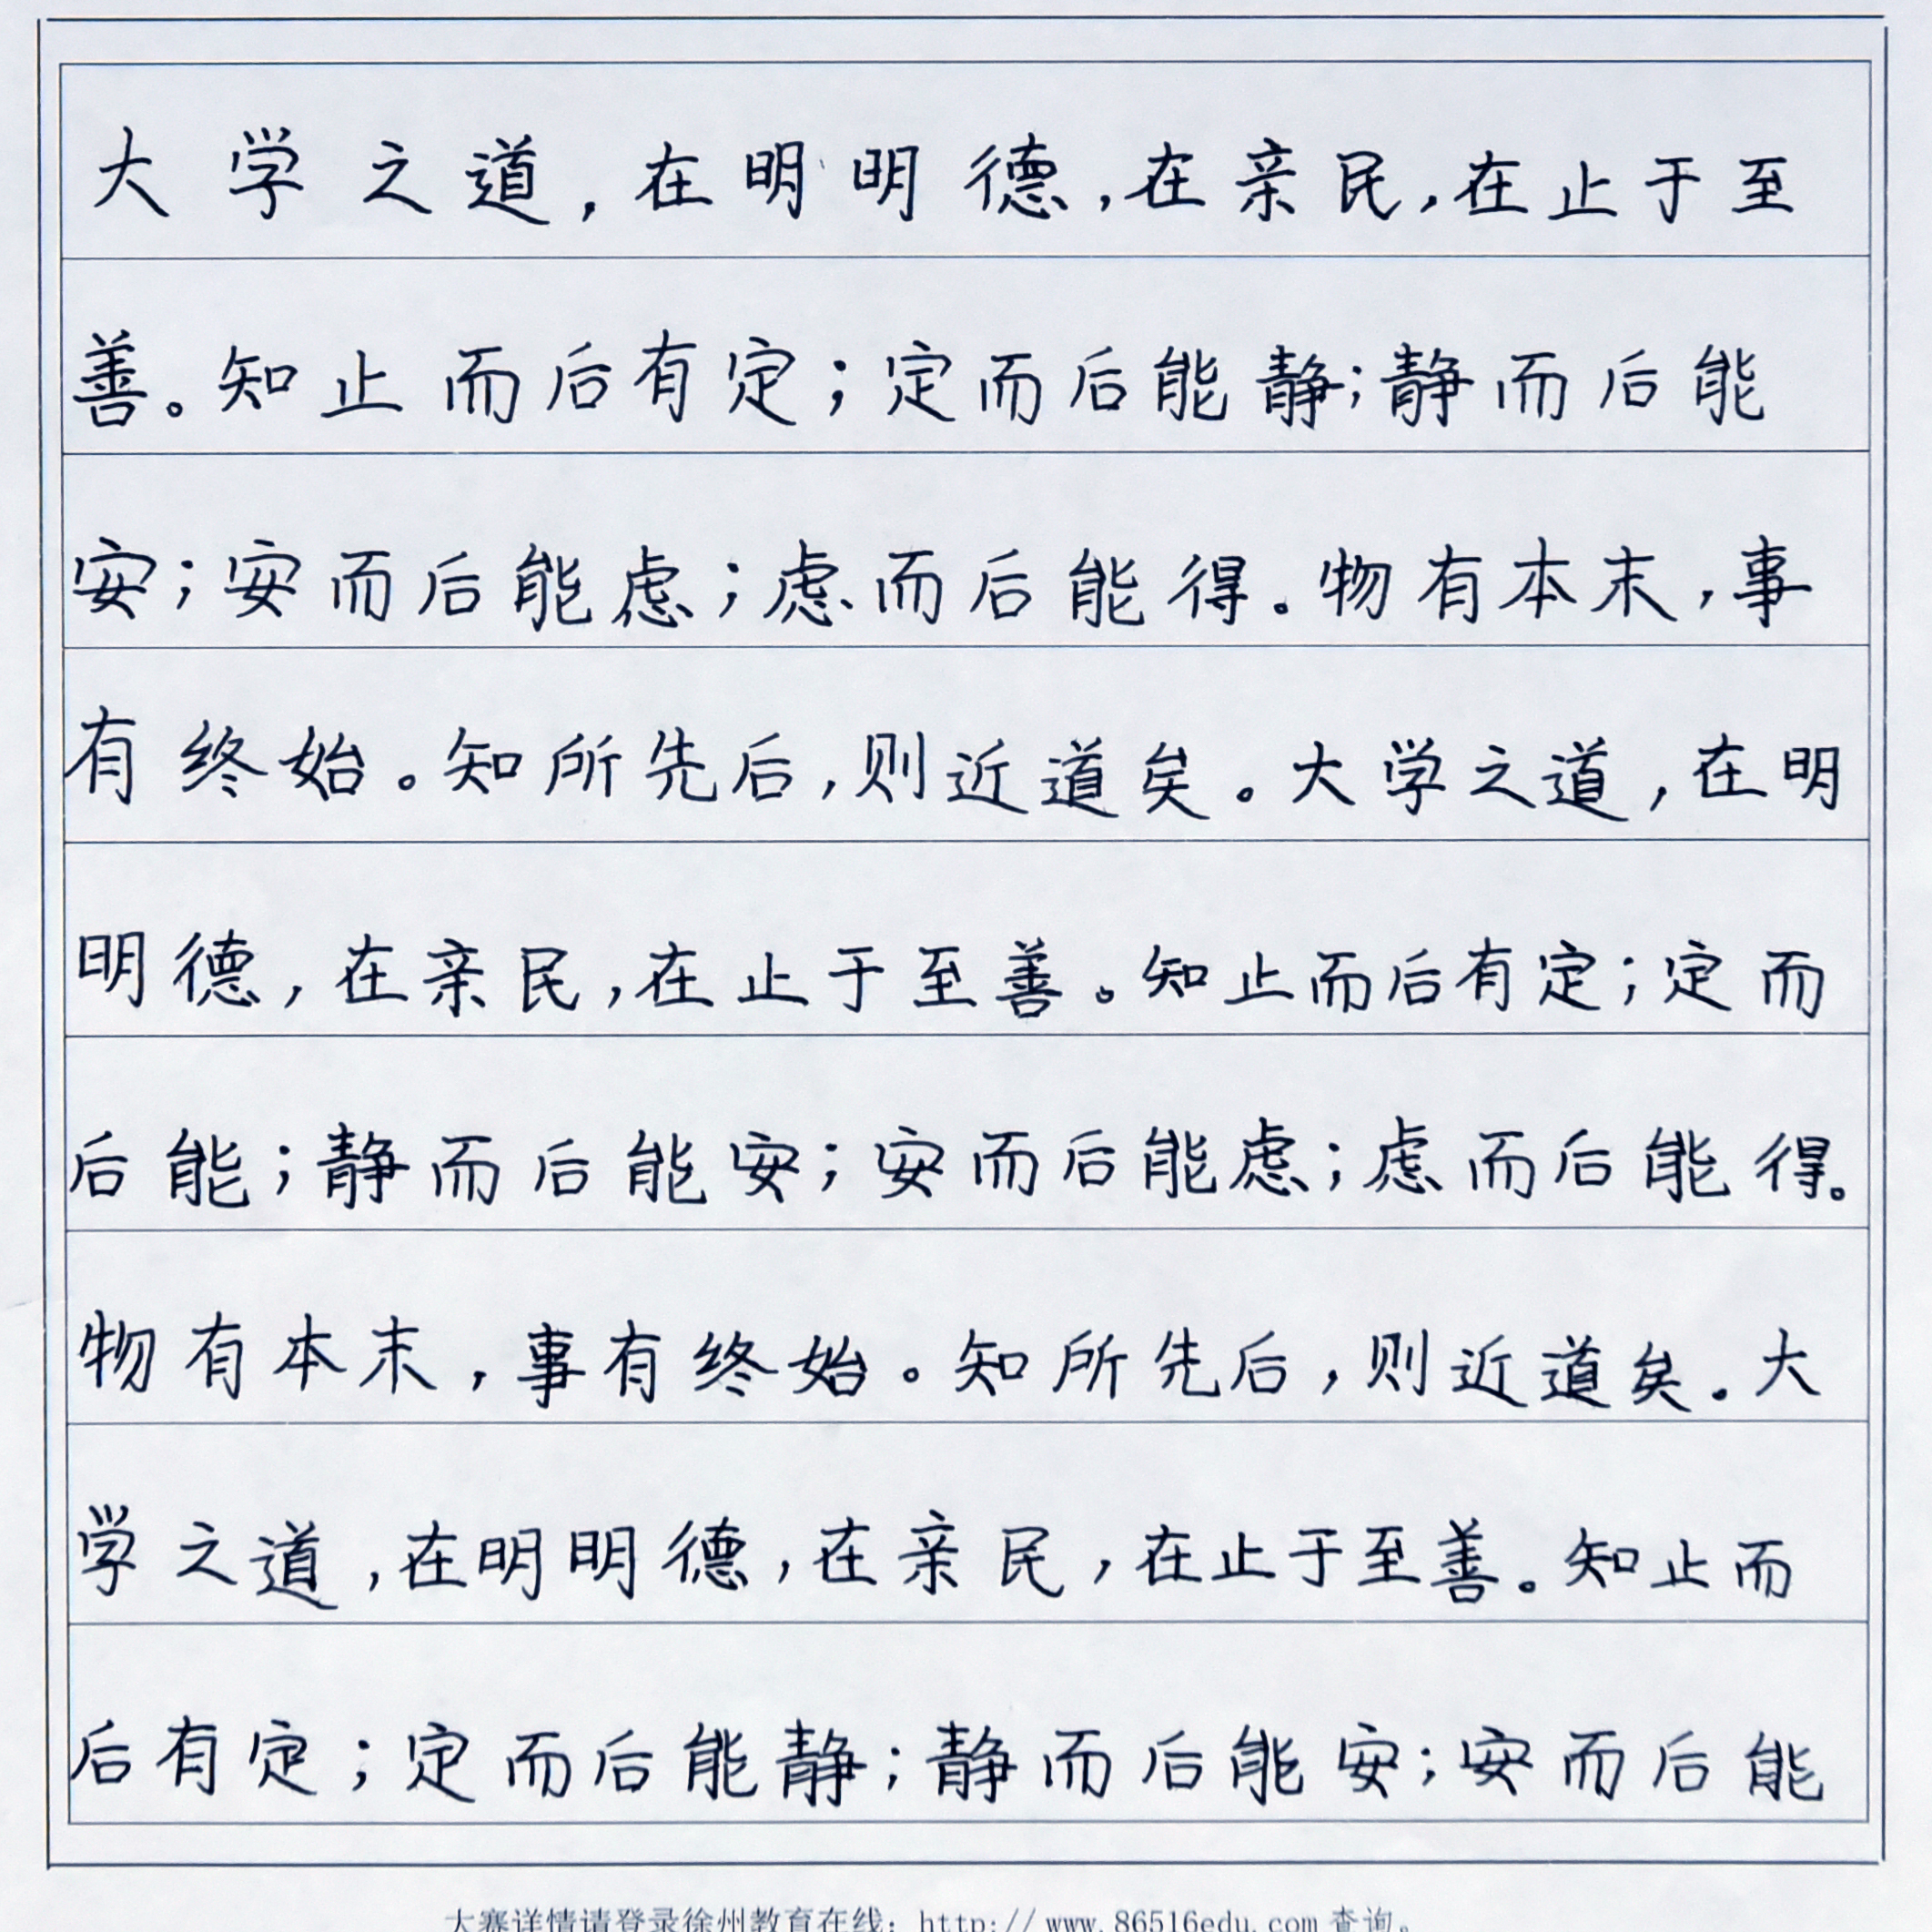 大学之道，在明明德，在亲民，在止于至
善。知止而后有定；定而后能静；静而后能
安；安而后能虑；虑而后能得。物有本末，事
有终始。知所先后，则近道矣。大学之道，在明
明德，在亲民，在止于至善。知止而后有定；定而
后能；静而后能安；安而后能虑；虑而后能得。
物有本末，事有终始。知所先后，则近道矣。大
学之道，在明明德，在亲民，在止于至善。知止而
后有定；定而后能静；静而后能安；安而后能
大赛详情请登录徐州教育在线：http://www.86516edu.com 查询。